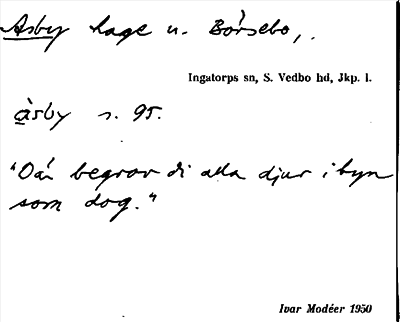 Asby hage u. Börsebo,.
Ingatorps sn, S. Vedbo hd, Jkp. l.
àsby s. 95.
"Där begrov di alla djur i byn
som dog."
Ivar Modéer 1950